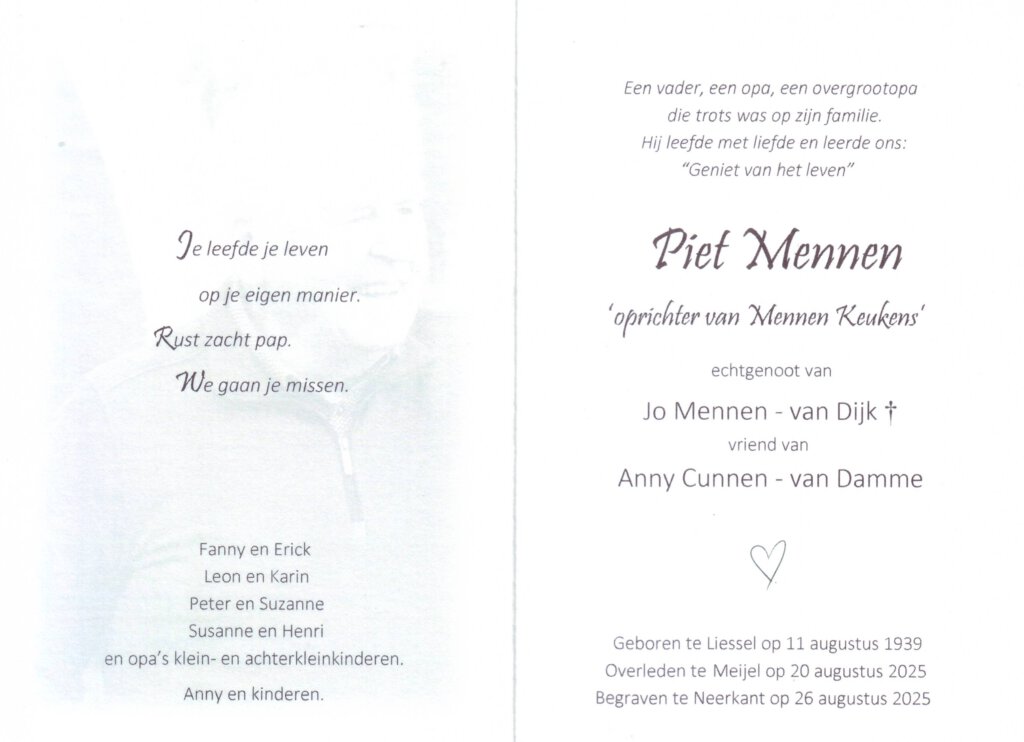 Je leefde je leven
op je eigen manier.
Rust zacht pap.
We gaan je missen.
Fanny en Erick
Leon en Karin
Peter en Suzanne
Susanne en Henri
en opa's klein- en achterkleinkinderen.
Anny en kinderen.
Een vader, een opa, een overgrootopa
die trots was op zijn familie.
Hij leefde met liefde en leerde ons:
“Geniet van het leven”
Piet Mennen
‘oprichter van Mennen Keukens’
echtgenoot van
Jo Mennen - van Dijk †
vriend van
Anny Cunnen - van Damme
Geboren te Liessel op 11 augustus 1939
Overleden te Meijel op 20 augustus 2025
Begraven te Neerkant op 26 augustus 2025